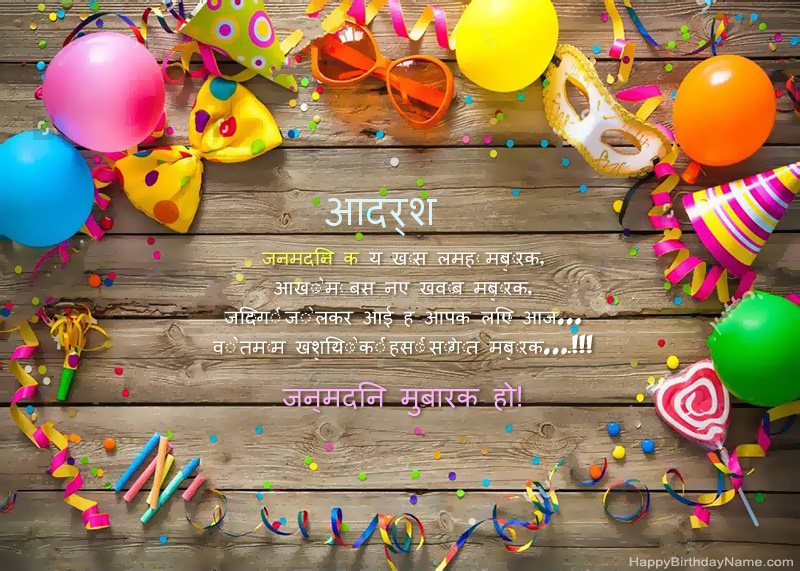 आदर्श
जन्मदिन के ये ख़ास लम्हें मुबारक,
आँखों में बसे नए ख्वाब मुबारक,
जिंदगी जो लेकर आई है आपके लिए आज...
वो तमाम खुशियों की हंसीं सौगात मुबारक...!!!
जन्मदिन मुबारक हो!
HappyBirthdayName.com